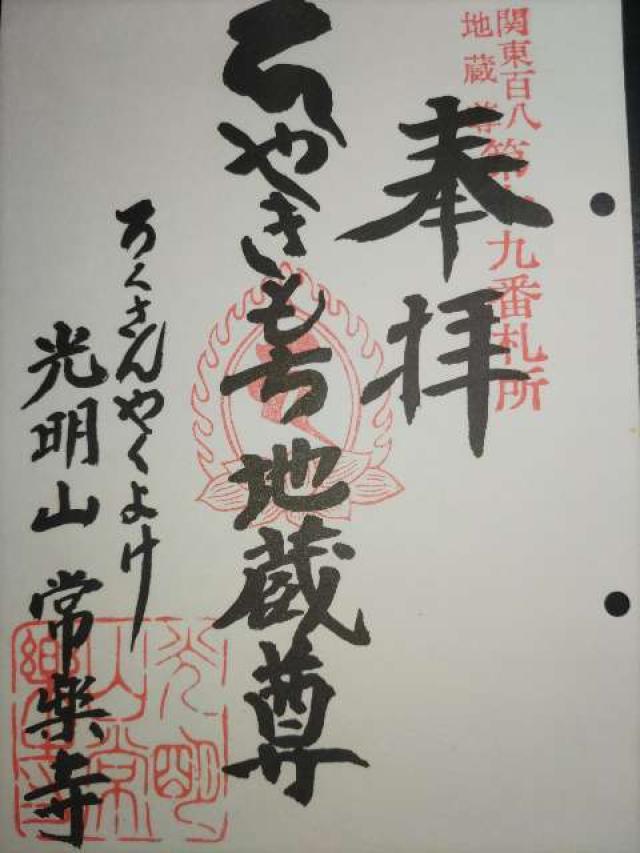 関東百八
地蔵尊
第
九番札所
奉拝
やきもち地蔵尊
ろくさんやくよけ
光明山 常楽寺
光明
山常
樂寺